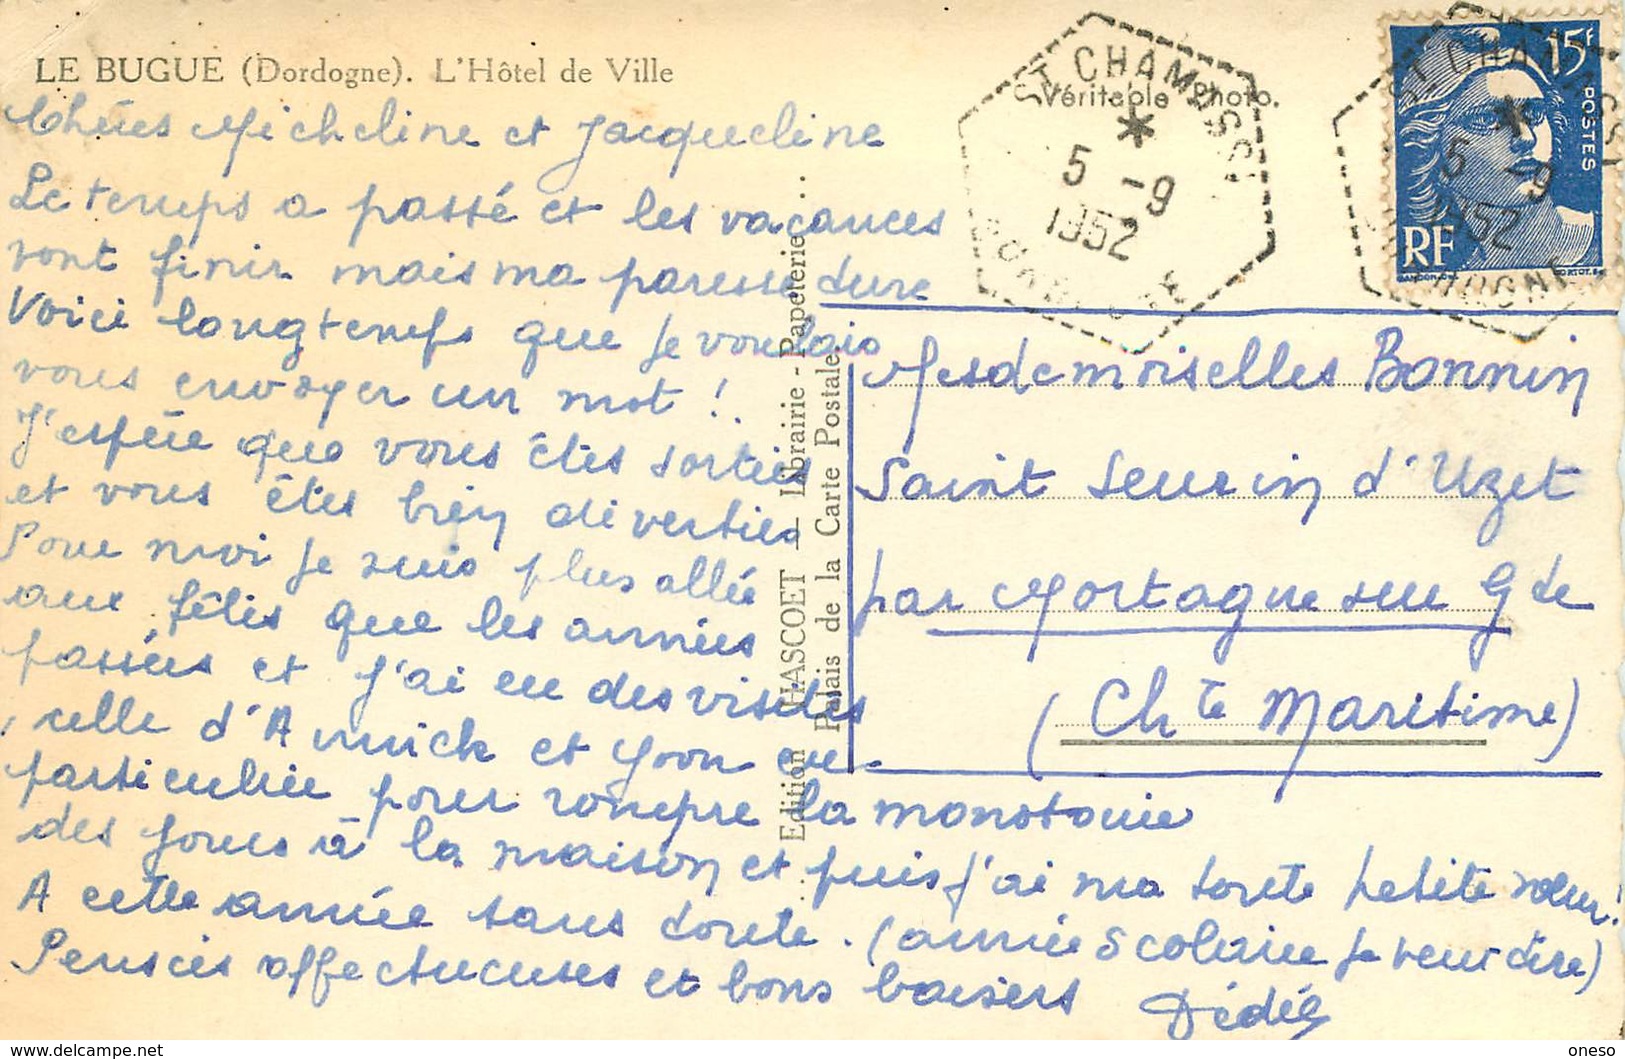 LE BUGUE (Dordogne). L'Hôtel de Ville
Chéres Micheline et Jacqueline
Le temps a passé et les vacances
vont finir mais ma paresse dure
Voici longtemps que je voulais
vous envoyer un mot !
J'espére que vous êtes sorties
et vous êtes bien diverties
Pour moi je suis plus allée
aux fêtes que les années
passées et j'ai eu des visites
celle d'Annick et Yvon en
particulier pour rompre la monotonie
des jours à la maison et puis j'ai ma toute petite sœur !
A cette année sans doute. (année scolaire je veux dire)
Pensées affectueuses et bons baisers Dédée
Edition HASCOET — Librairie - Papeterie
Palais de la Carte Postale
Véritable Photo.
ST CHAMASSY
5 -9
1952
DORDOGNE
15F
POSTES
RF
ST CHAMASSY
5 -9
1952
DORDOGNE
Mesdemoiselles Bonnin
Saint Seurin d'Uzet
par Mortagne sur Gde
(Chte Maritime)
https://www.delcampe.net
oneso